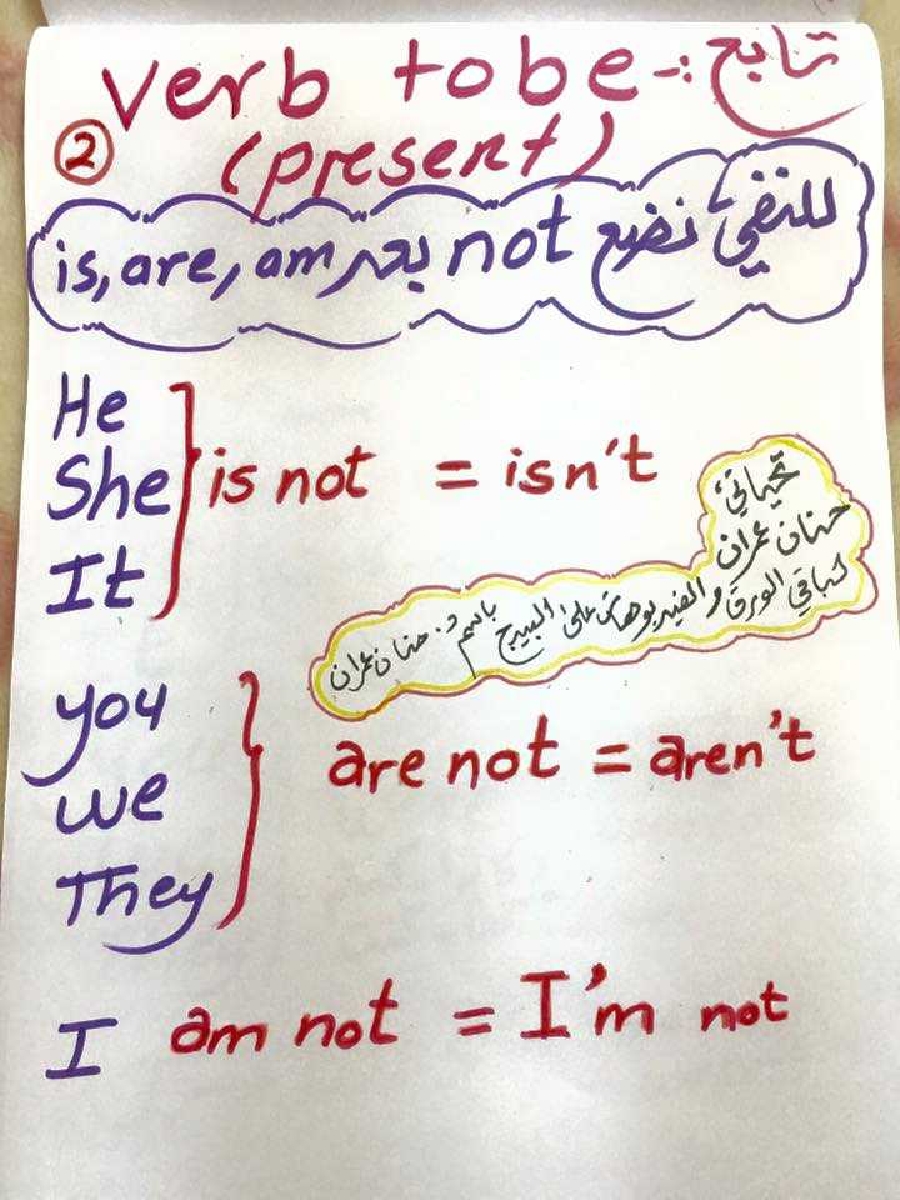 تابع :- verb to be
② (present)
للنفي نضع not بعد is, are, am
He
She
It
is not = isn't
تحياتي
حنان عمران
لباقي الورق والفيديوهات على البيج باسم د. حنان عمران
you
we
They
are not = aren't
I am not = I'm not